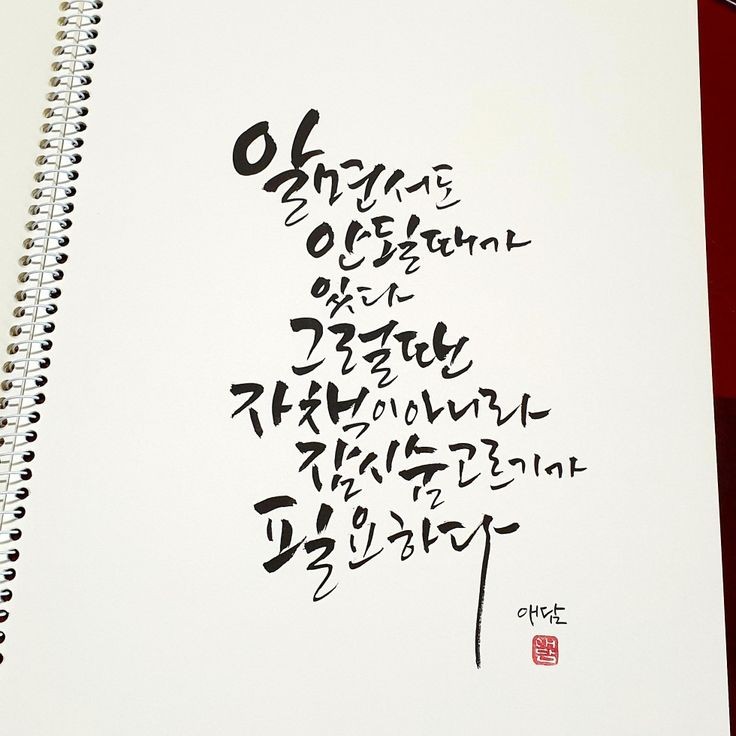 알면서도
안될때가
있다
그럴땐
자책이아니라
잠시숨고르기가
필요하다
애담
애담